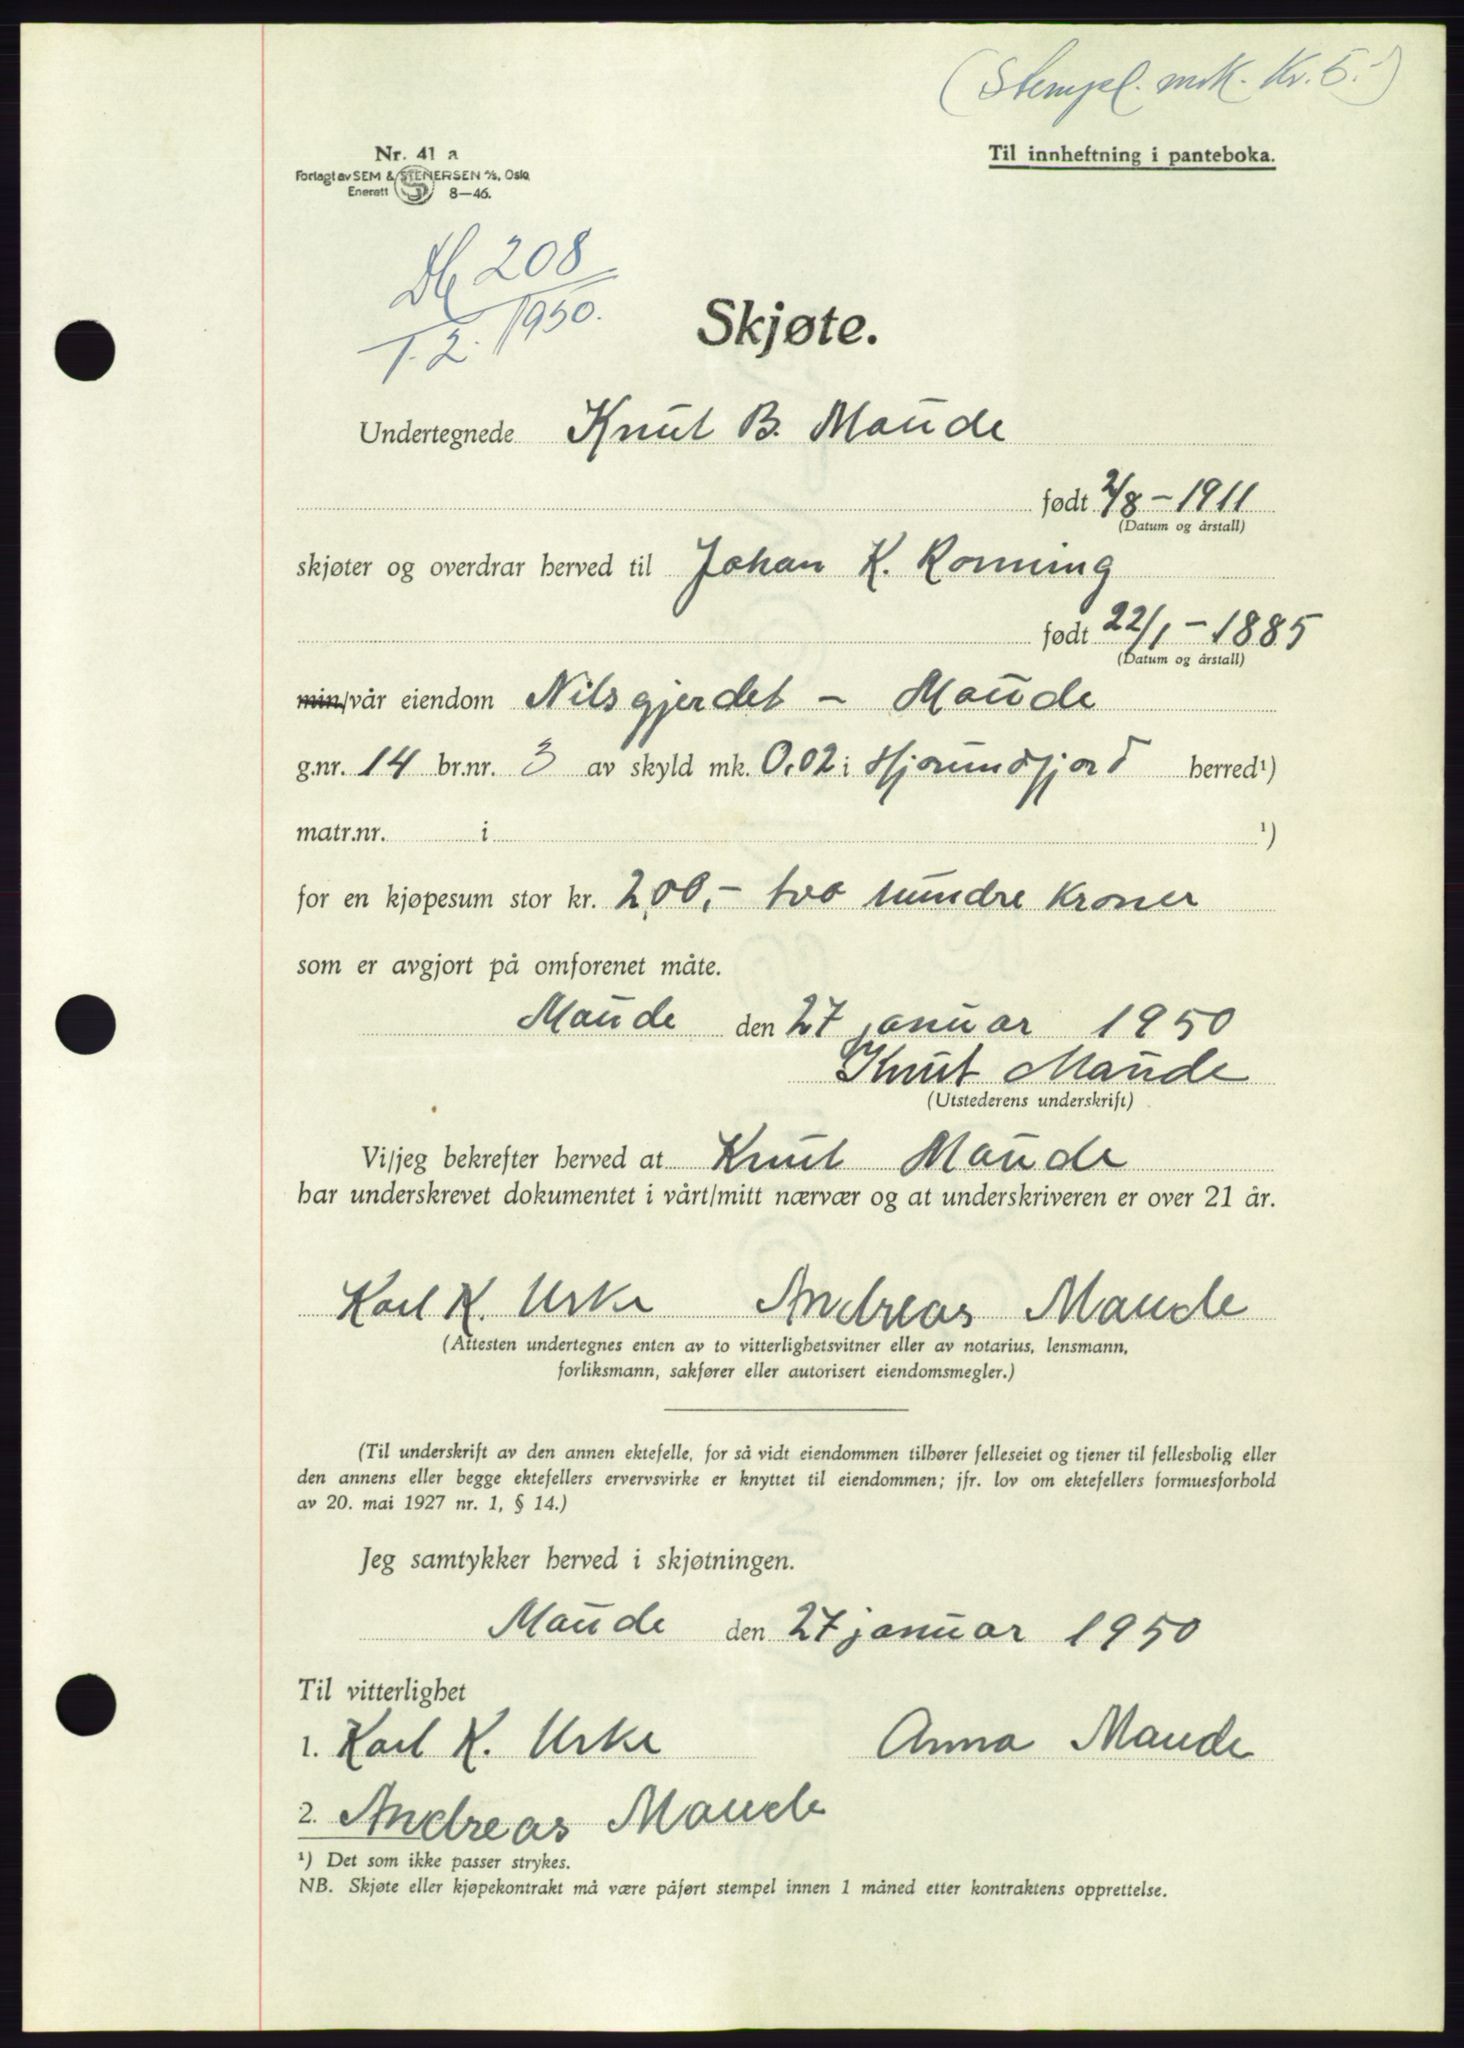 (Stempel. mrk. Kr. 5.-)
Nr. 41 a
Forlagt av SEM & STENERSEN A/S, Oslo
Enerett 8—46.
Til innheftning i panteboka.
Db 208
1.2. 1950.
Skjøte.
Undertegnede Knut B. Maude
født 2/8 – 1911
(Datum og årstall)
skjøter og overdrar herved til Johan K. Ronning
født 22/1 – 1885
(Datum og årstall)
min/vår eiendom Nilsgjerdet – Maude
g.nr. 14 br.nr. 3 av skyld mk. 0,02 i Hjørundfjord herred¹)
matr.nr. i ¹)
for en kjøpesum stor kr. 200,- two hundre kroner
som er avgjort på omforenet måte.
Maude den 27 januar 1950
Knut Maude
(Utstederens underskrift)
Vi/jeg bekrefter herved at Knut Maude
har underskrevet dokumentet i vårt/mitt nærvær og at underskriveren er over 21 år.
Karl K. Urke Andreas Maude
(Attesten undertegnes enten av to vitterlighetsvitner eller av notarius, lensmann,
forliksmann, sakfører eller autorisert eiendomsmegler.)
(Til underskrift av den annen ektefelle, for så vidt eiendommen tilhører felleseiet og tjener til fellesbolig eller
den annens eller begge ektefellers ervervsvirke er knyttet til eiendommen; jfr. lov om ektefellers formuesforhold
av 20. mai 1927 nr. 1, § 14.)
Jeg samtykker herved i skjøtningen.
Maude den 27 januar 1950
Til vitterlighet
1. Karl K. Urke Anna Maude
2. Andreas Maude
¹) Det som ikke passer strykes.
NB. Skjøte eller kjøpekontrakt må være påført stempel innen 1 måned etter kontraktens opprettelse.